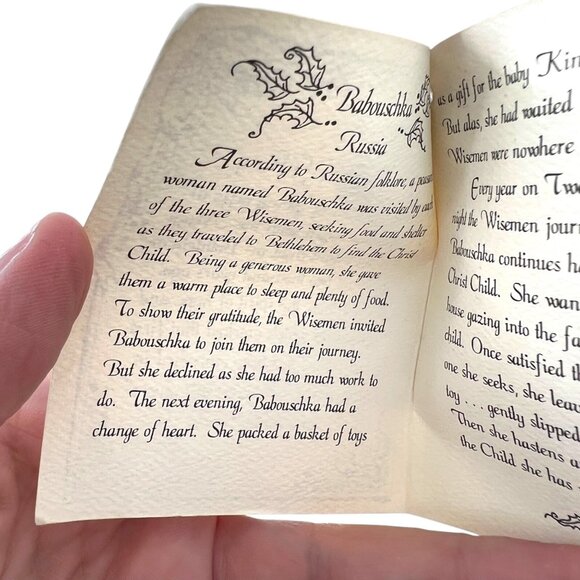 Babouschka
Russia
According to Russian folklore, a
woman named Babouschka was visited by
of the three Wisemen, seeking food and shelter
as they traveled to Bethlehem to find the Christ
Child. Being a generous woman, she gave
them a warm place to sleep and plenty of food.
To show their gratitude, the Wisemen invited
Babouschka to join them on their journey.
But she declined as she had too much work to
do. The next evening, Babouschka had a
change of heart. She packed a basket of toys
as a gift for the baby
But alas, she had waited
Wisemen were nowhere
Every year on
night the Wisemen
Babouschka continues
Christ Child. She
house gazing into the
child. Once satisfied
one she seeks, she
toy . . . gently slipped
Then she hastens
the Child she has